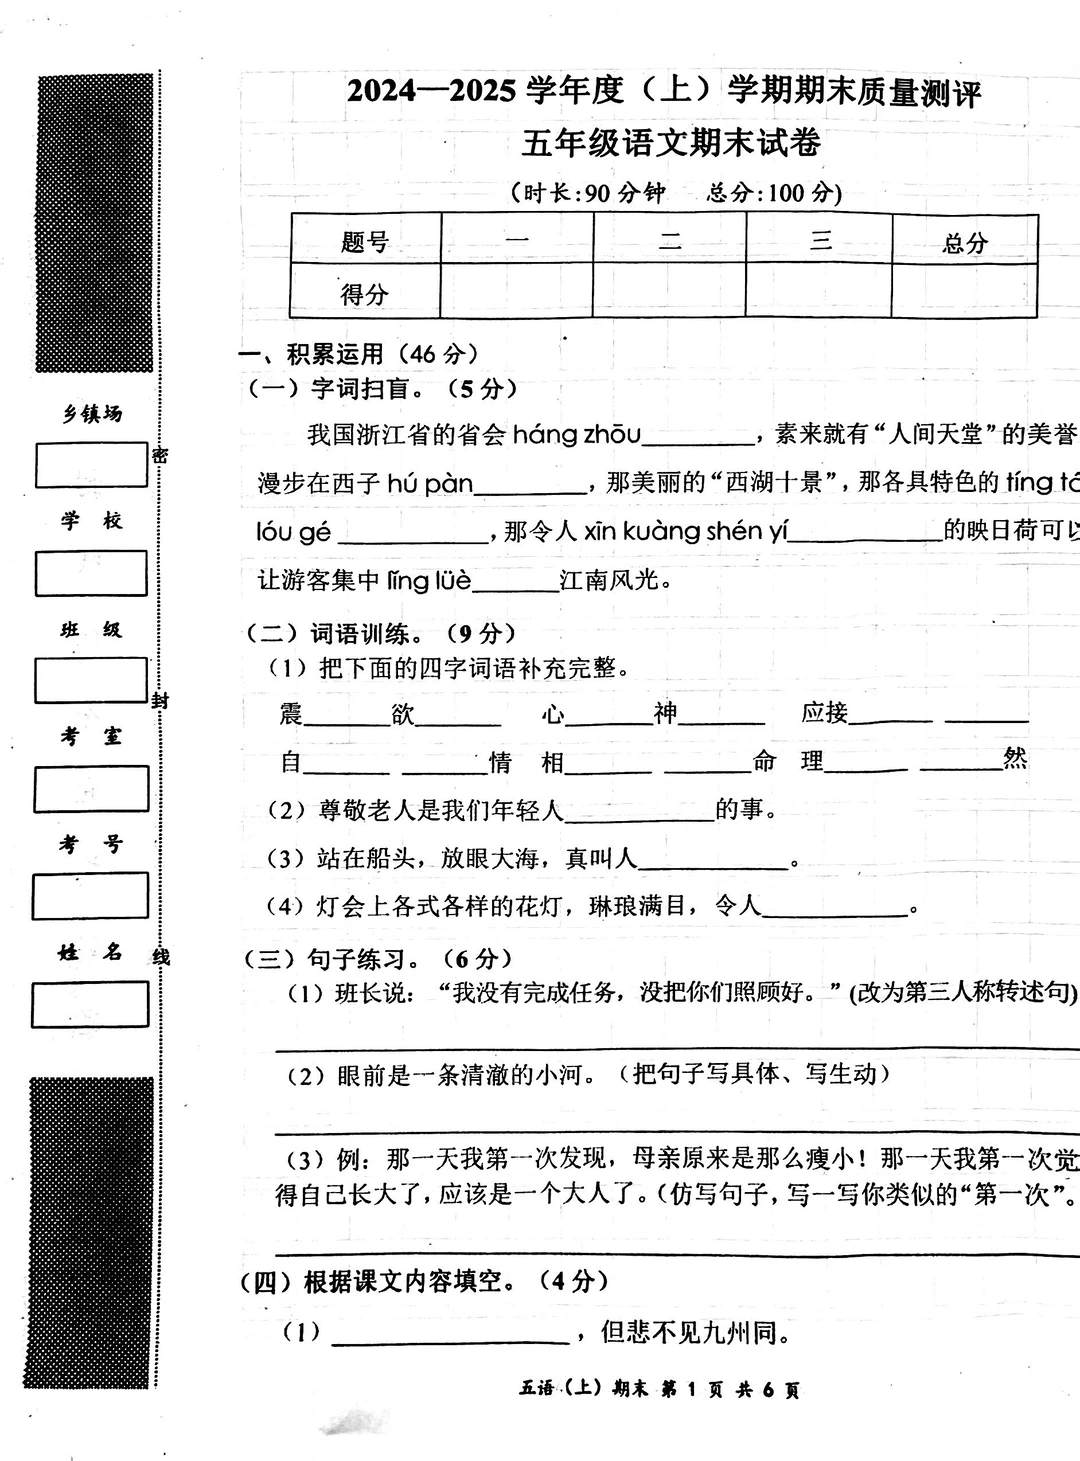 2024—2025 学年度（上）学期期末质量测评
五年级语文期末试卷
（时长:90 分钟 总分:100 分)
题号 一 二 三 总分
得分
一、积累运用（46 分）
（一）字词扫盲。（5 分）
我国浙江省的省会 háng zhōu________，素来就有“人间天堂”的美誉
漫步在西子 hú pàn________，那美丽的“西湖十景”，那各具特色的 tíng
lóu gé __________，那令人 xīn kuàng shén yí__________的映日荷可以
让游客集中 lǐng lüè______江南风光。
（二）词语训练。（9 分）
（1）把下面的四字词语补充完整。
震______欲______ 心______神______ 应接______ ______
自______ ______情 相______ ______命 理______ ______然
（2）尊敬老人是我们年轻人__________的事。
（3）站在船头，放眼大海，真叫人__________。
（4）灯会上各式各样的花灯，琳琅满目，令人__________。
（三）句子练习。（6 分）
（1）班长说：“我没有完成任务，没把你们照顾好。”(改为第三人称转述句)
（2）眼前是一条清澈的小河。（把句子写具体、写生动）
（3）例：那一天我第一次发现，母亲原来是那么瘦小！那一天我第一次觉
得自己长大了，应该是一个大人了。（仿写句子，写一写你类似的“第一次”。
（四）根据课文内容填空。（4 分）
（1）________________，但悲不见九州同。
五语（上）期末 第 1 页 共 6 页
乡镇场
学 校
班 级
考 室
考 号
姓 名
密
封
线